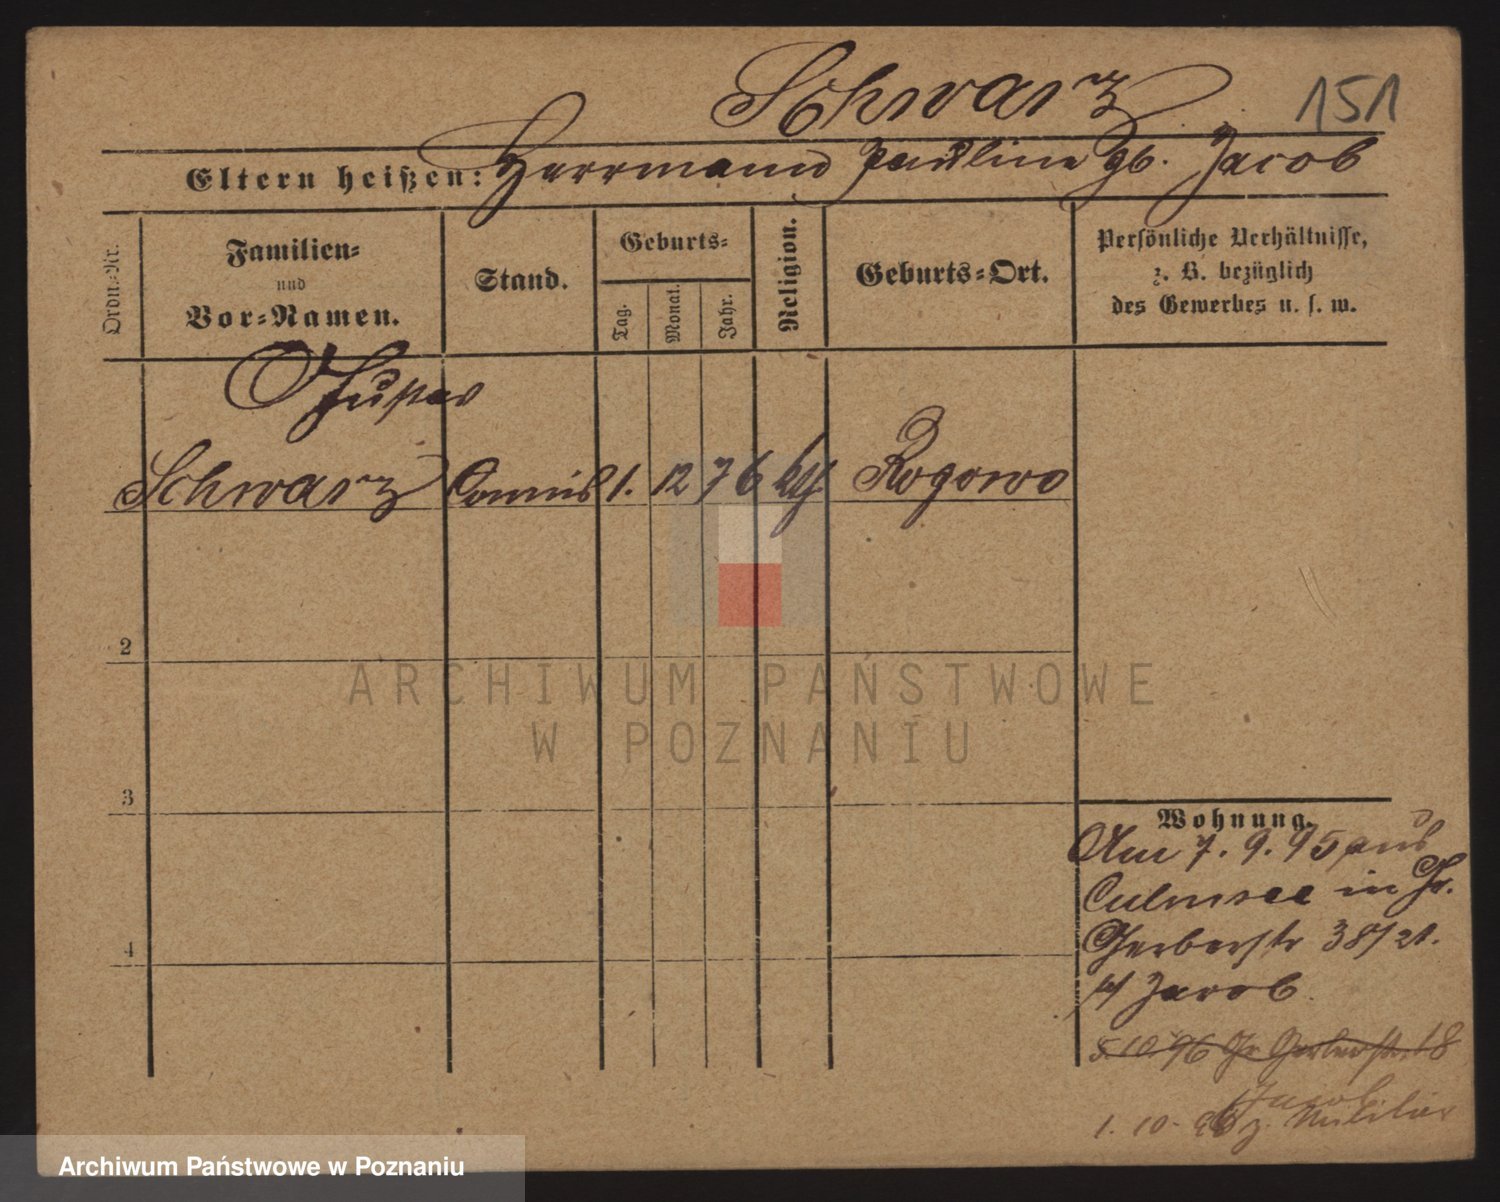 Schwarz 151
Eltern heißen: Herrmann Pauline gb. Jacob
Ordn.-Nr.
Familien-
und
Vor-Namen.
Stand.
Geburts-
Tag.
Monat.
Jahr.
Religion.
Geburts-Ort.
Persönliche Verhältnisse,
z. B. bezüglich
des Gewerbes u. s. w.
Gustav
Schwarz Commis 1. 12 76 Rogowo
2
3
4
Wohnung.
Am 7. 9. 95 aus
Culmsee in Gr.
Gerberstr 38/21.
b/ Jacob.
5. 10. 96 Gr Gerberstr. 18
Jacob
1. 10. 96 z. Militär
ARCHIWUM PAŃSTWOWE
W POZNANIU
Archiwum Państwowe w Poznaniu